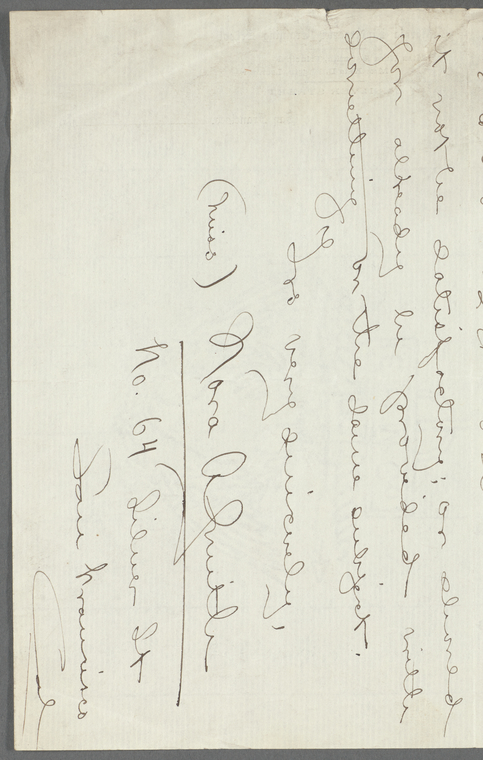 it not be satisfactory, or should
you already be provided with
something on the same subject.
Yrs very sincerely,
(Miss) Nora A. Smith
No. 64 Silver St
San Francisco
Cal